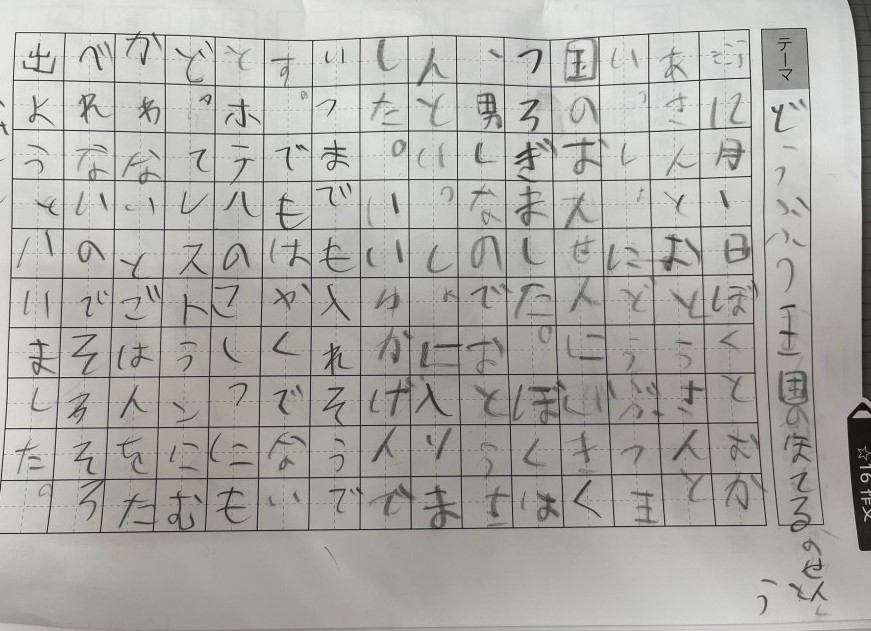 テーマ
どうぶつ王国のほてるのせんとう
12月1日ぼくとおか
あさんとおとうさんと
いっしょにどうぶつ王
国のおんせんにいきく
つろぎました。ぼくは
、男しなのでおとうさ
んといっしょに入りま
した。いいゆがげんで
いつまでも入れそうで
す。でもはかくでない
とホテルのこしつにも
どってレストうンにむ
かわないとごはんをた
べれないのでそろそろ
出ようといいました。
☆16 作文